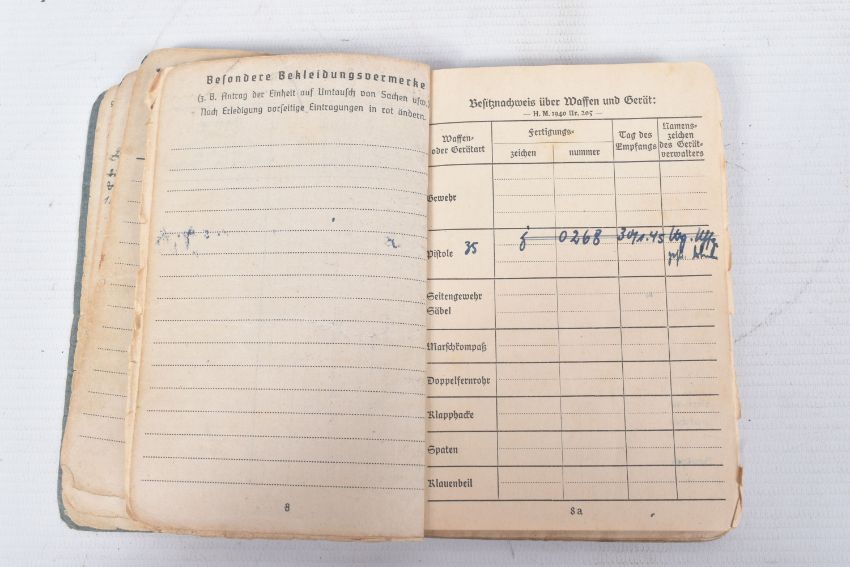 Besondere Bekleidungsvermerke
(z. B. Antrag der Einheit auf Umtausch von Sachen usw.)
Nach Erledigung vorseitige Eintragungen in rot ändern.
8
Besitznachweis über Waffen und Gerät:
— H. M. 1940 Nr. 205 —
Waffen-
oder Gerätart
Fertigungs-
zeichen
nummer
Tag des
Empfangs
Namens-
zeichen
des Gerät-
verwalters
Gewehr
Pistole 35 0268
Seitengewehr
Säbel
Marschkompaß
Doppelfernrohr
Klapphacke
Spaten
Klauenbeil
8a